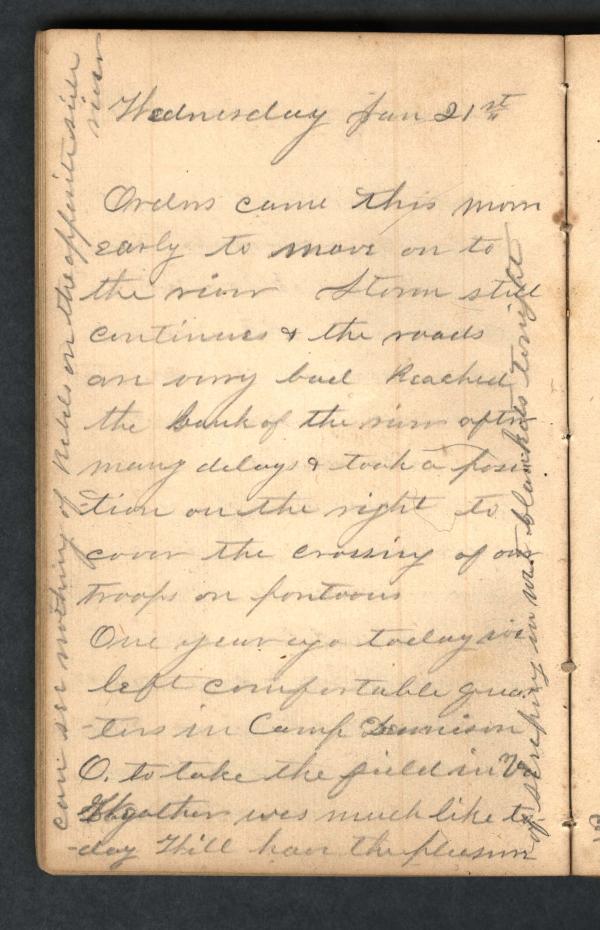 Wednesday Jan 21st
Orders came this morn
early to move on to
the river Storm still
continues & the roads
are very bad Reached
the bank of the river after
many delays & took a posi
-tion on the right to
cover the crossing of our
troops on pontoons
One year ago today we
left comfortable quar
-ters in Camp Dennison
O. to take the field in V.
Weather was much like to
-day Will have the pleasure
of sleeping in wet blankets tonight
can see nothing of Rebels on the opposite side
river